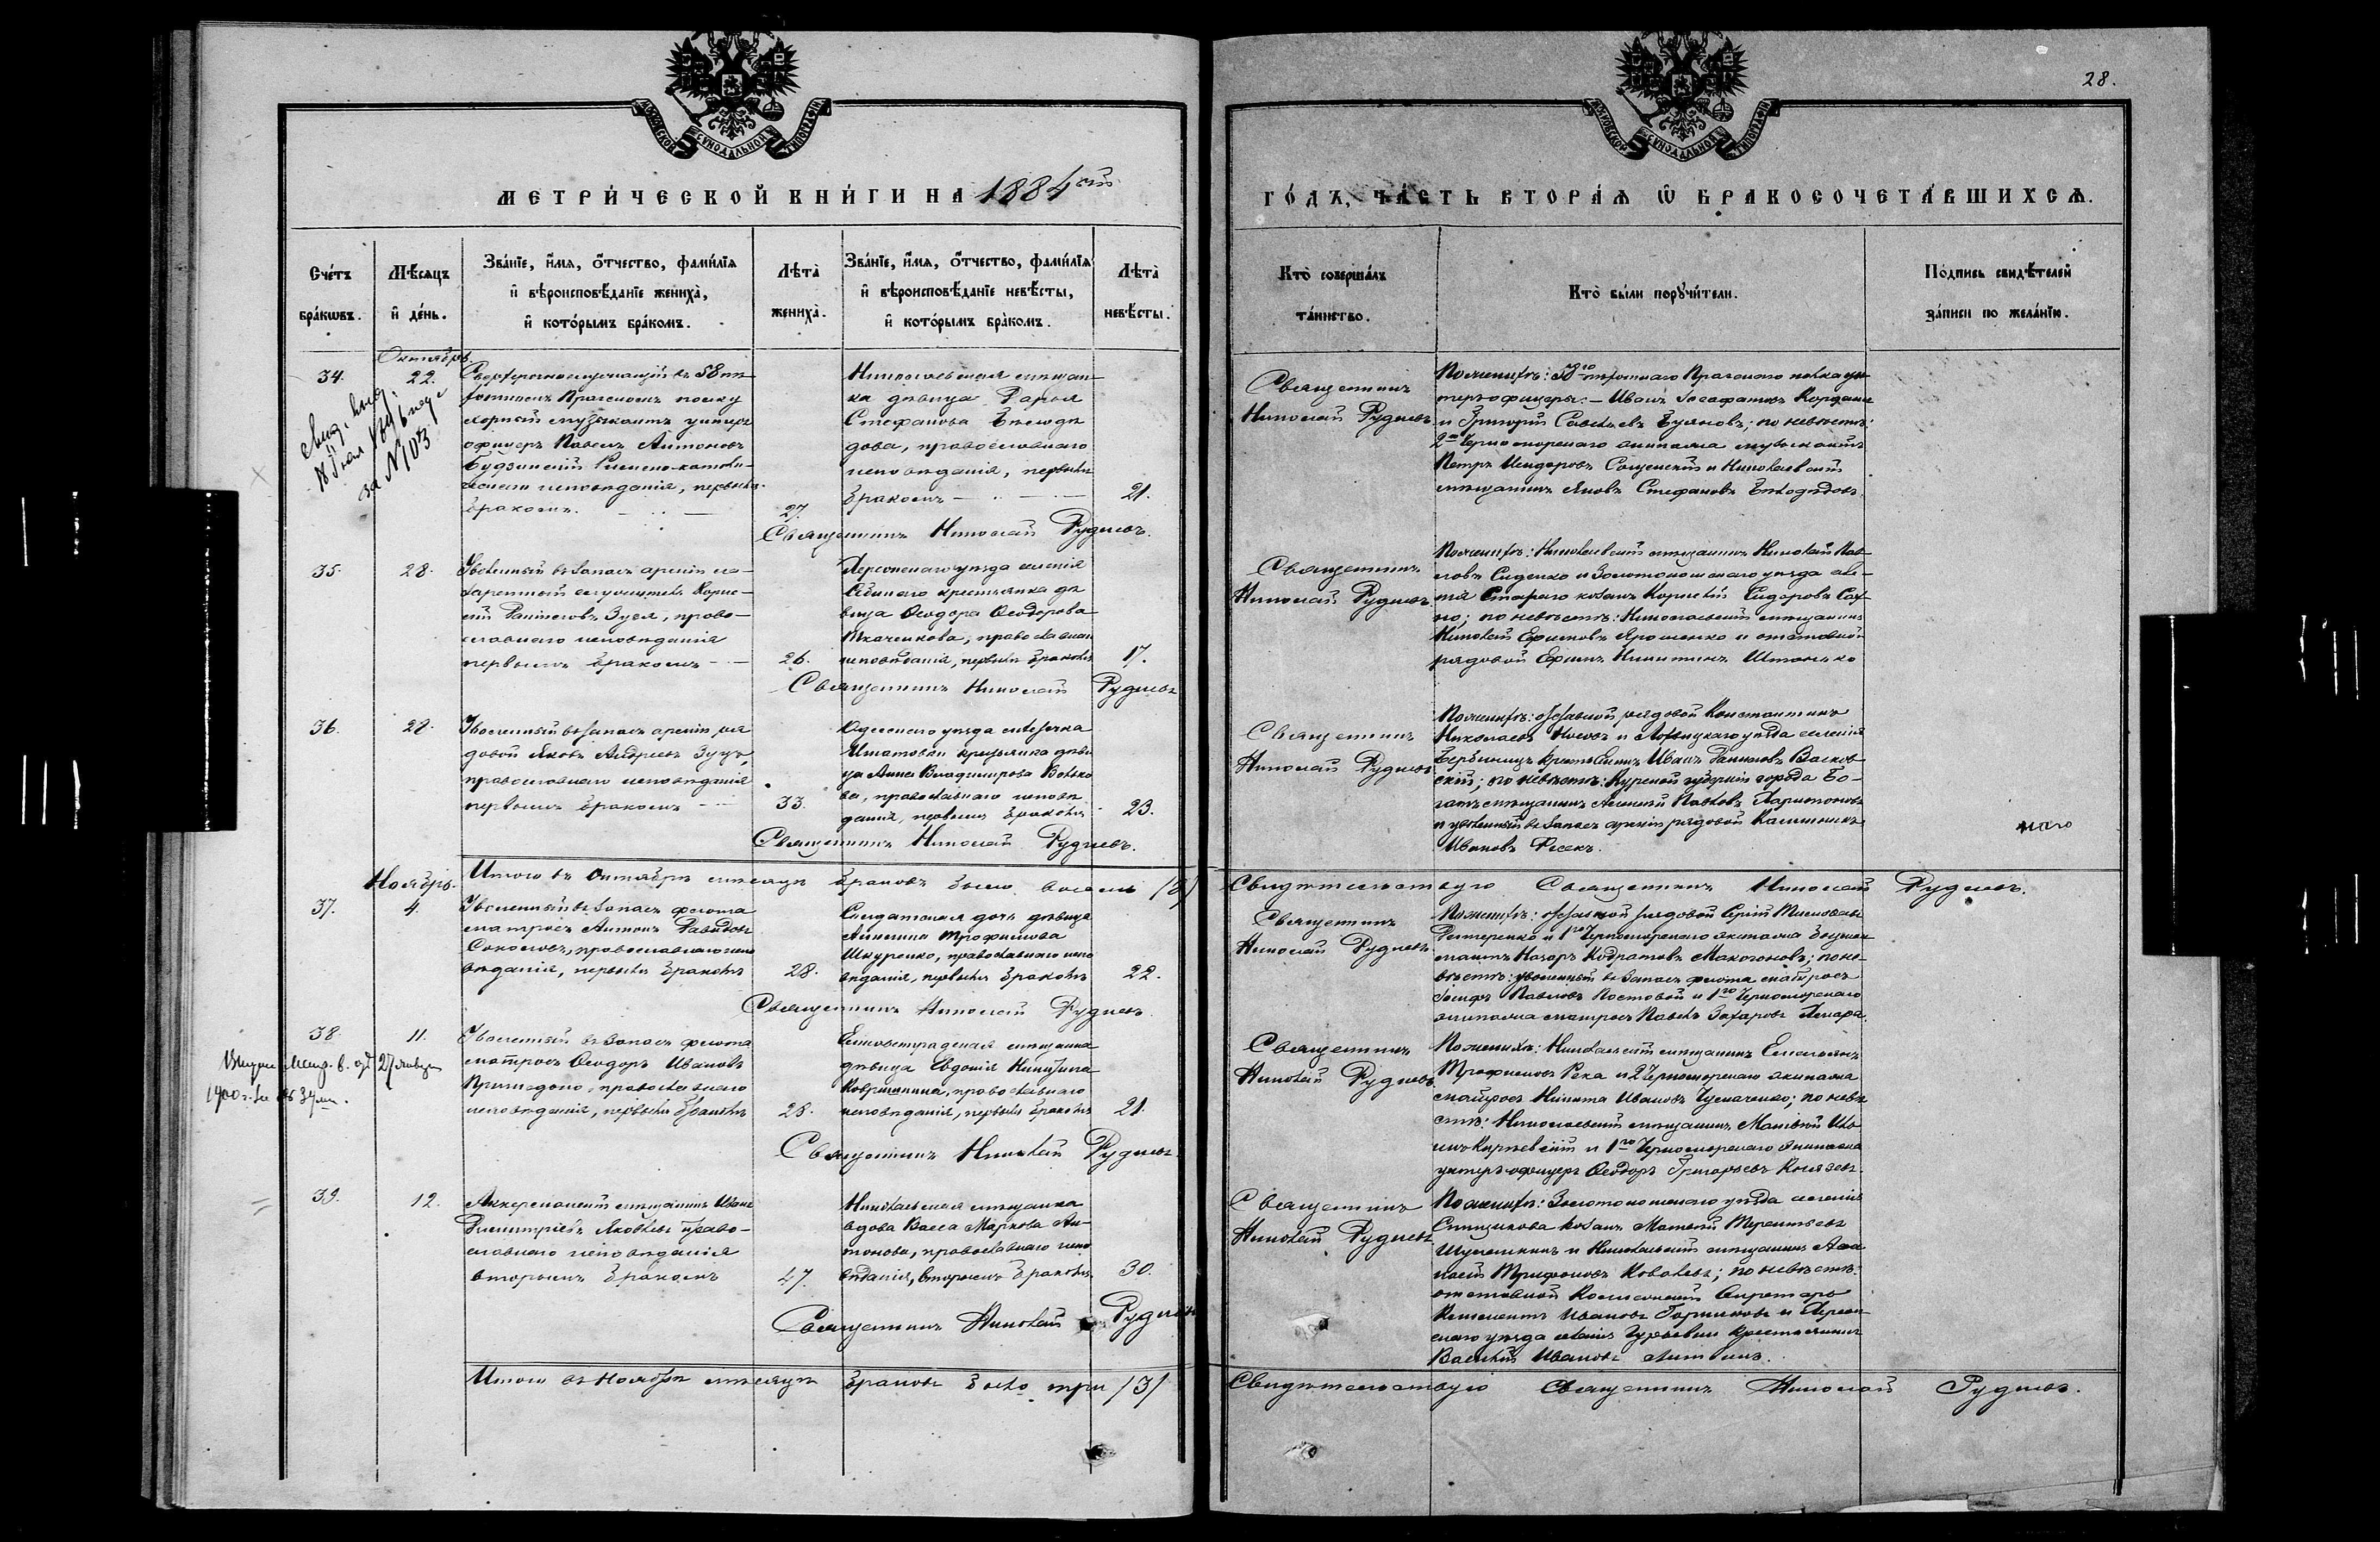 28.
МОСКОВСКОЙ СѴНОДАЛЬНОЙ ТИПОГРАФІИ
МОСКОВСКОЙ СѴНОДАЛЬНОЙ ТИПОГРАФІИ
МЕТРИ́ЧЕСКОЙ КНИ́ГИ НА 1884 ый
ГО́ДЪ, ЧА́СТЬ ВТОРА́Я Ѡ БРАКОСОЧЕТА́ВШИХСЯ.
Сче́тъ бра́кѡвъ.
Мѣ́сяцъ и де́нь.
Зва́нїе, и́мя, о́тчество, фами́лїя
и вѣроисповѣ́данїе жениха̀,
и кото́рымъ бра́комъ.
Лѣта̀ жениха̀.
Зва́нїе, и́мя, о́тчество, фами́лїя
и вѣроисповѣ́данїе невѣ́сты,
и кото́рымъ бра́комъ.
Лѣта̀ невѣ́сты.
Кто̀ соверша́лъ та́инство.
Кто̀ бы́ли порꙋчи́тели.
По́дпись свидѣ́телей за́писи по жела́нїю.
Октябрь.
34.
22.
за №103
Сверхсрочнослужащій въ 58 пѣ
хотномъ Пражскомъ полку
хорный музыкантъ унтеръ
офицеръ Павелъ Антоновъ
Будзинскій Римско-католи-
ческаго исповѣданія, первымъ
бракомъ.
27.
Николаевская мѣщан
ка дѣвица Дарья
Стефанова Бѣлодѣ
дова, православнаго
исповѣданія, первымъ
бракомъ
21.
Священникъ
Николай Рудневъ
По женихѣ: 58го пѣхотнаго Пражскаго полка ун
теръ-офицеры: Иванъ Іосафатовъ
и Григорій Савельевъ; по невѣстѣ:
2го Черноморскаго экипажа музыкантъ
Петръ и Николаевскій
мѣщанинъ Яковъ Стефановъ Бѣлодѣдовъ.
Священникъ Николай Рудневъ.
35.
28.
Уволенный въ запасъ арміи ла-
заретный служитель Корне-
лій Даниловъ Зуев, право-
славнаго исповѣданія
первымъ бракомъ
26.
Херсонскаго уѣзда селенія
крестьянка дѣ
вица Ѳеодора Ѳеодорова
Ткаченкова, православнаго
исповѣданія, первымъ бракомъ
17.
Священникъ
Николай Рудневъ
По женихѣ: Николаевскій мѣщанинъ Николай Пав
ловъ Сиденко и Золотоношскаго уѣзда селе-
нія козакъ Корнелій Сидоровъ Сах
но; по невѣстѣ: Николаевскій мѣщанинъ
Николай Ефимовъ Ярошенко и отставной
рядовой Ефимъ Никитинъ
Священникъ Николай Рудневъ
36.
28.
Уволенный въ запасъ арміи ря
довой Яковъ Андреевъ Зуцъ,
православнаго исповѣданія
первымъ бракомъ
33.
Одесскаго уѣзда мѣстечка
крестьянка дѣви
ца Анна Владимірова Волко
ва, православнаго исповѣ
данія, первымъ бракомъ
23.
Священникъ
Николай Рудневъ
По женихѣ: отставной рядовой Константинъ
Николаевъ Носовъ и уѣзда селенія
крестьянинъ Иванъ Даниловъ
по невѣстѣ: Курской губерніи города Бо-
гатъ мѣщанинъ Алексѣй Павловъ Харитоновъ
и уволенный въ запасъ арміи рядовой
Ивановъ
Священникъ Николай Рудневъ.
Итого въ Октябрѣ мѣсяцѣ браковъ было восемь /8/
Свидѣтельствую Священникъ Николай Рудневъ.
Ноябрь.
37.
4.
Уволенный въ запасъ флота
матросъ Антонъ Давидовъ
Соколовъ, православнаго испо
вѣданія, первымъ бракомъ
28.
Солдатская дочь дѣвица
Акилина Трофимова
Шкуренко, православнаго испо
вѣданія, первымъ бракомъ
22.
Священникъ
Николай Рудневъ
По женихѣ: отставной рядовой Сергій
и 1го Черноморскаго экипажа боцман
матъ Назаръ Макогоновъ; по не-
вѣстѣ: уволенный въ запасъ флота матросъ
Іосифъ Павловъ Постовой и 1го Черноморскаго
экипажа матросъ Павелъ Захаровъ
Священникъ Николай Рудневъ
38.
11.
Уволенный въ запасъ флота
матросъ Ѳеодоръ Ивановъ
православнаго
исповѣданія, первымъ бракомъ
28.
Елисаветградская мѣщанка
дѣвица Евдокія Никитина
православнаго
исповѣданія, первымъ бракомъ
21.
Священникъ
Николай Рудневъ
По женихѣ: Николаевскій мѣщанинъ Емельянъ
Трофимовъ Река и 2 Черноморскаго экипажа
матросъ Никита Ивановъ; по невѣ
стѣ: Николаевскій мѣщанинъ Матвѣй
и 1го Черноморскаго экипажа
унтеръ-офицеръ Ѳеодоръ Григорьевъ Князевъ.
Священникъ Николай Рудневъ.
39.
12.
Аккерманскій мѣщанинъ Иванъ
Димитріевъ Яковлевъ право-
славнаго исповѣданія
вторымъ бракомъ
47.
Николаевская мѣщанка
вдова Васса Маркова Ан-
тонова, православнаго испо
вѣданія, вторымъ бракомъ
30.
Священникъ
Николай Рудневъ
По женихѣ: Золотоношскаго уѣзда селенія
козакъ Матвѣй Терентьевъ
и Николаевскій мѣщанинъ Афа
насій Трифоновъ Ковалевъ; по невѣстѣ:
отставной Коллежскій Секретарь
Климентъ Ивановъ и Херсон
скаго уѣзда селенія крестьянинъ
Василій Ивановъ Литвинъ.
Священникъ Николай Рудневъ
Итого въ Ноябрѣ мѣсяцѣ браковъ было три /3/
Свидѣтельствую Священникъ Николай Рудневъ.